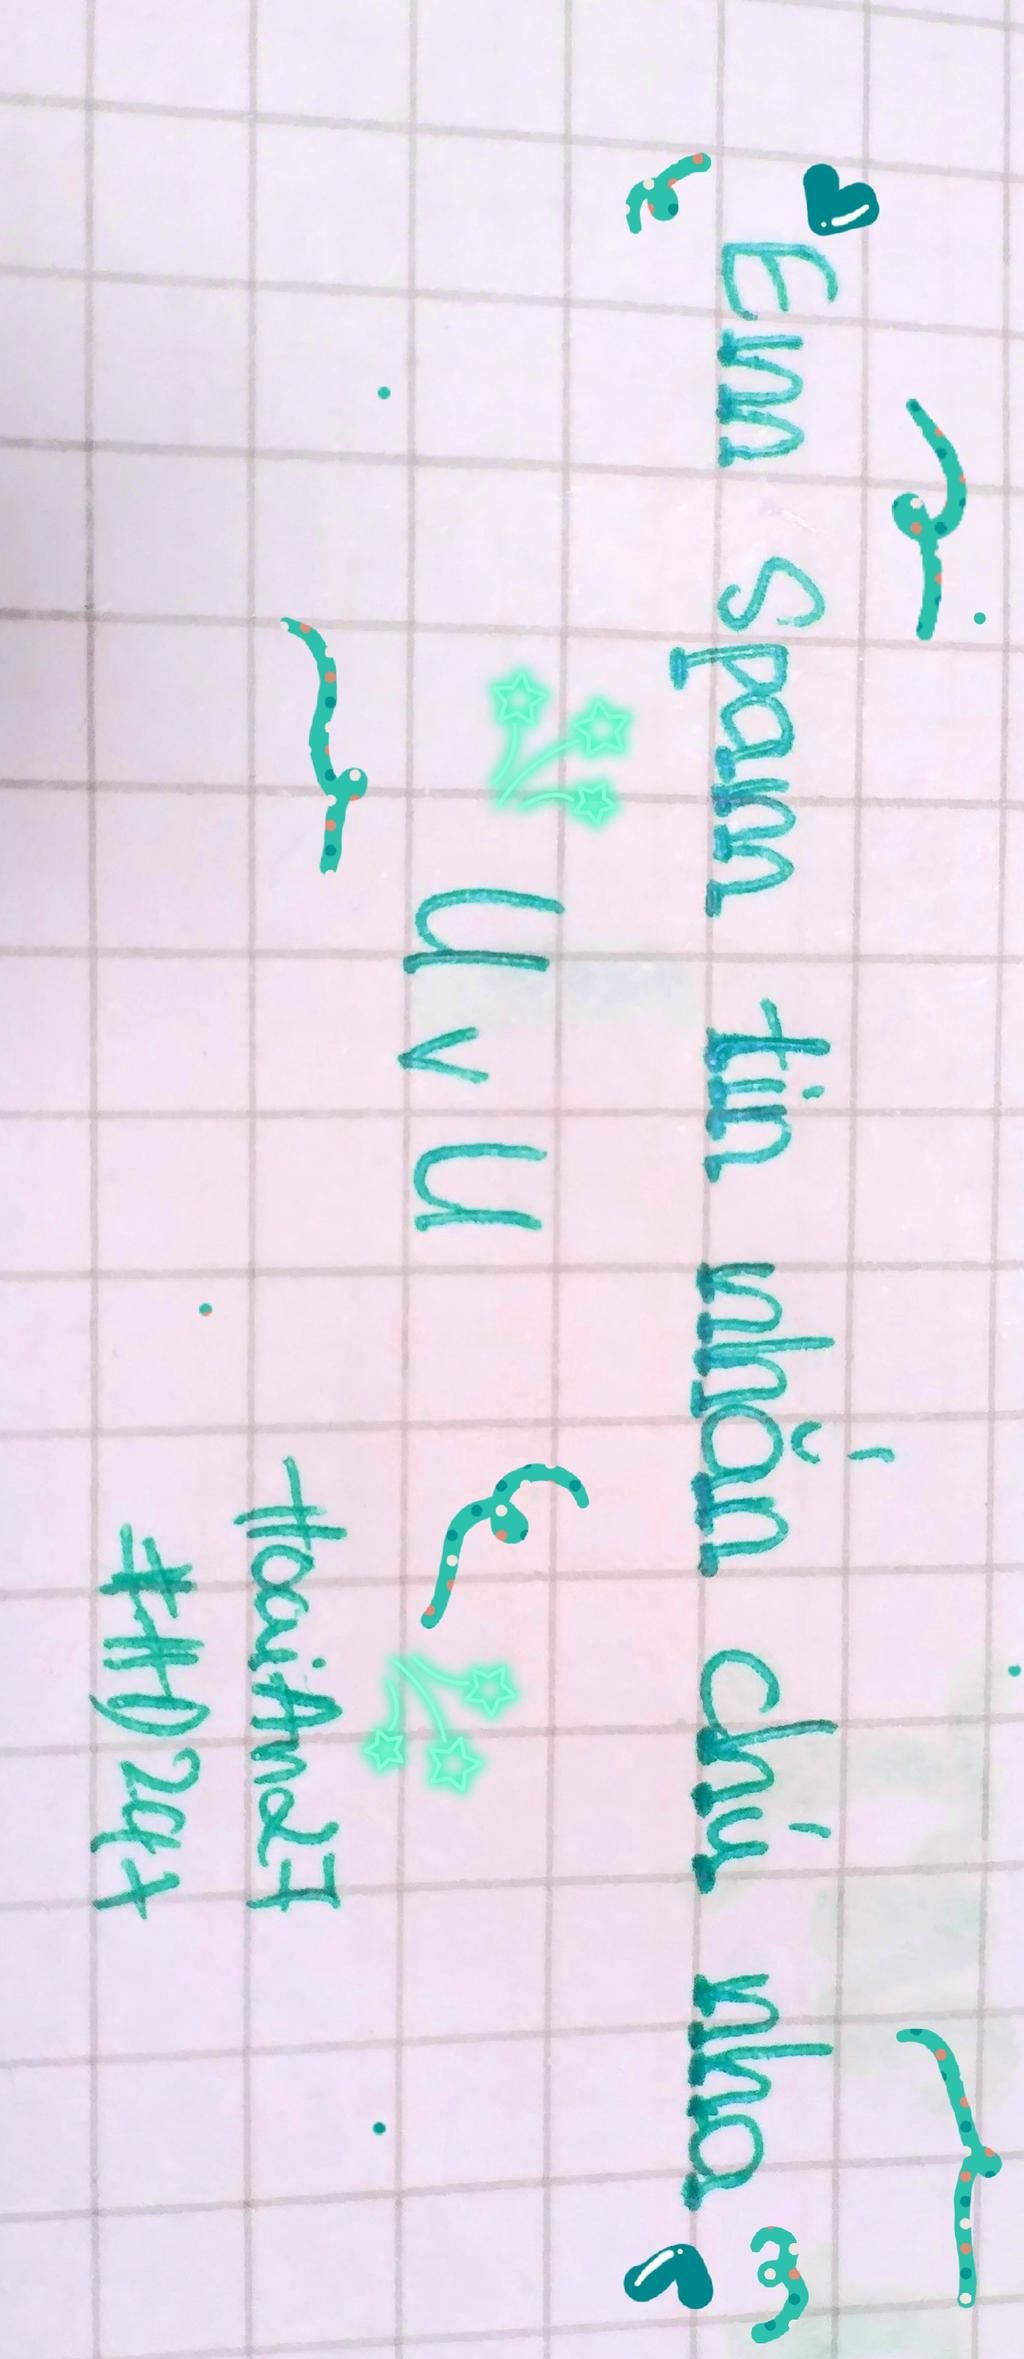 Em spam tin nhắn chú nha
U v U
HoaiAn27
#HD2047